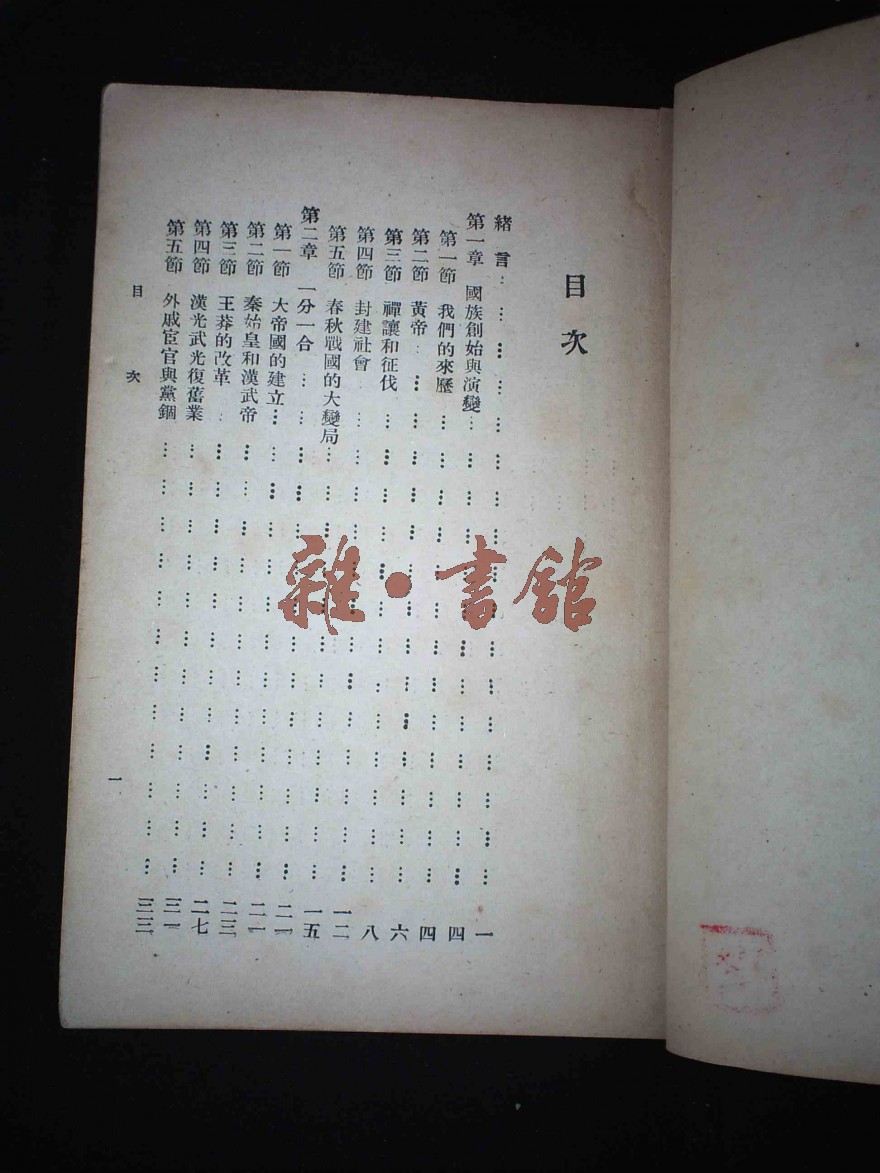 目次
緒言………………一
第一章 國族創始與演變………………四
第一節 我們的來歷………………四
第二節 黃帝………………六
第三節 禪讓和征伐………………八
第四節 封建社會………………一二
第五節 春秋戰國的大變局………………一五
第二章 一分一合………………二一
第一節 大帝國的建立………………二一
第二節 秦始皇和漢武帝………………二三
第三節 王莽的改革………………二七
第四節 漢光武光復舊業………………三一
第五節 外戚宦官與黨錮………………三三
目次
一
雜·書館